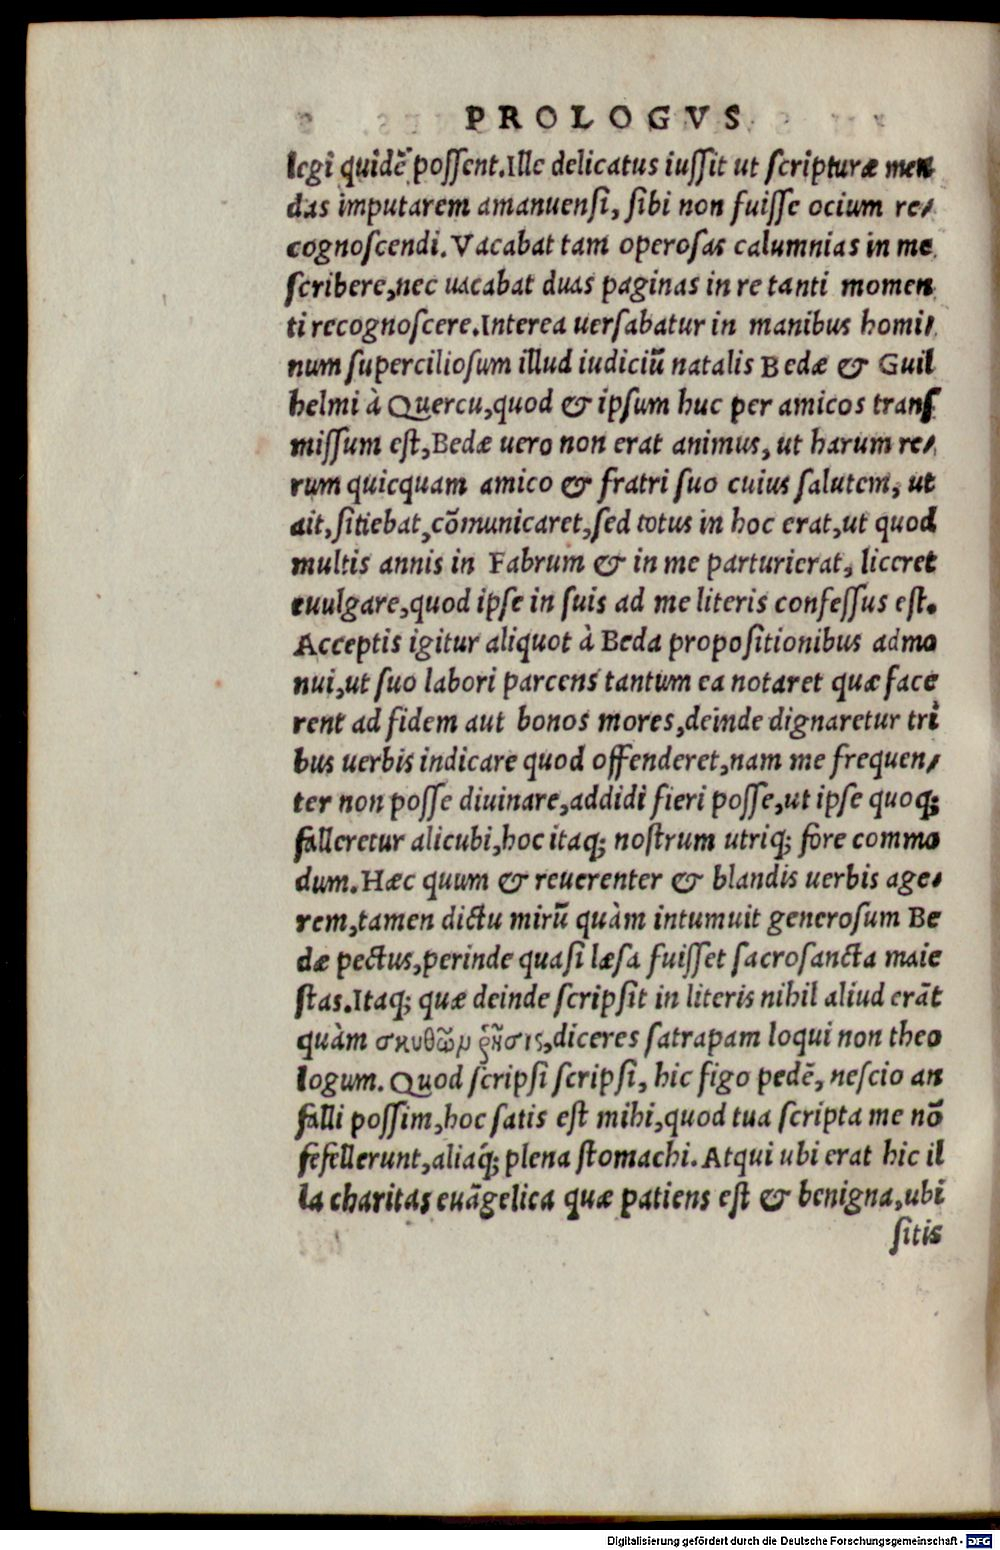 PROLOGVS
legi quidẽ possent. Ille delicatus iussit ut scripturæ men
das imputarem amanuensi, sibi non fuisse ocium re-
cognoscendi. Vacabat tam operosas calumnias in me
scribere, nec uacabat duas paginas in re tanti momen
ti recognoscere. Interea uersabatur in manibus homi-
num superciliosum illud iudiciũ natalis Bedæ & Guil
helmi à Quercu, quod & ipsum huc per amicos trans
missum est, Bedæ uero non erat animus, ut harum re-
rum quicquam amico & fratri suo cuius salutem, ut
ait, sitiebat, cõmunicaret, sed totus in hoc erat, ut quod
multis annis in Fabrum & in me parturierat, liceret
euulgare, quod ipse in suis ad me literis confessus est.
Acceptis igitur aliquot à Beda propositionibus admo
nui, ut suo labori parcens tantum ea notaret quæ face
rent ad fidem aut bonos mores, deinde dignaretur tri
bus uerbis indicare quod offenderet, nam me frequen-
ter non posse diuinare, addidi fieri posse, ut ipse quoq;
falleretur alicubi, hoc itaq; nostrum utriq; fore commo
dum. Hæc quum & reuerenter & blandis uerbis age-
rem, tamen dictu mirũ quàm intumuit generosum Be
dæ pectus, perinde quasi læsa fuisset sacrosancta maie
stas. Itaq; quæ deinde scripsit in literis nihil aliud erãt
quàm σκυθῶμ ῥῆσις, diceres satrapam loqui non theo
logum. Quod scripsi scripsi, hic figo pedẽ, nescio an
falli possim, hoc satis est mihi, quod tua scripta me nõ
fefellerunt, aliaq́; plena stomachi. Atqui ubi erat hic il
la charitas euãgelica quæ patiens est & benigna, ubi
sitis
Digitalisierung gefördert durch die Deutsche Forschungsgemeinschaft - DFG